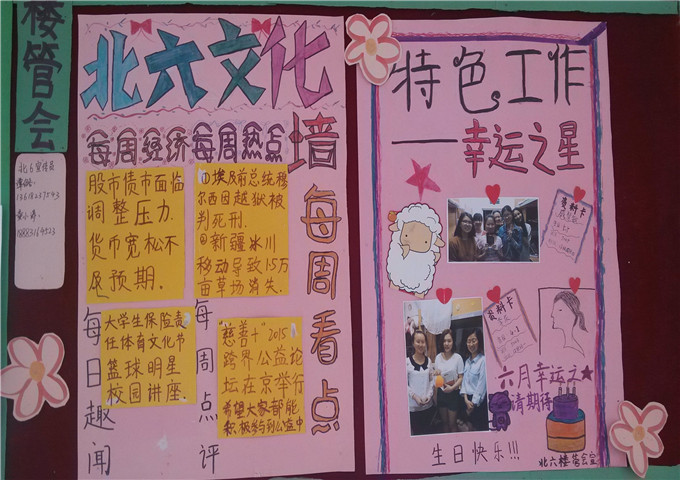 楼管会
北六文化墙
每周经济
股市债市面临
调整压力.
货币宽松不
足预期.
每周热点
①埃及前总统穆
尔西因越狱被
判死刑.
②新疆冰川
移动导致15万
亩草场消失.
每周看点
每日趣闻
大学生保险责
任体育文化节
篮球明星
校园讲座.
每周点评
"慈善+"2015
跨界公益论
坛在京举行
希望大家都能
积极参与到公益中
特色工作
——幸运之星
资料卡
资料卡
六月幸运之★
请期待
生日快乐!!!
北六楼管会宣